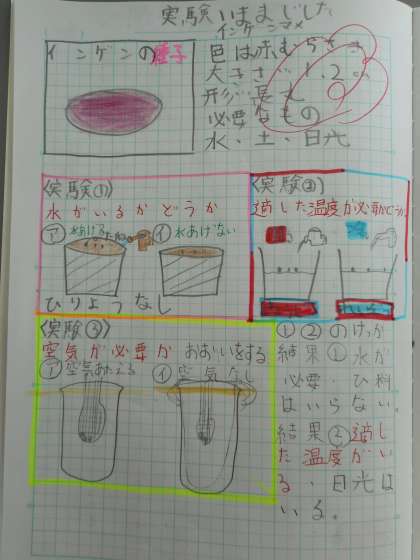 実験いまましした
インゲンマメ
インゲンの種子
色は赤むらさき
大きさ…1.2
形…長丸
必要なもの
水、土、日光
〈実験①〉
水がいるかどうか
ア 水あげる イ 水あげない
ひりょうなし
〈実験②〉
適した温度が必要かどうか
〈実験③〉
空気が必要か おおいをする
ア 空気あたえる イ 空気なし
①②のけっか
結果①水が
必要、ひ料
はいらない。
結果②適し
た温度がい
る、日光は
いる。